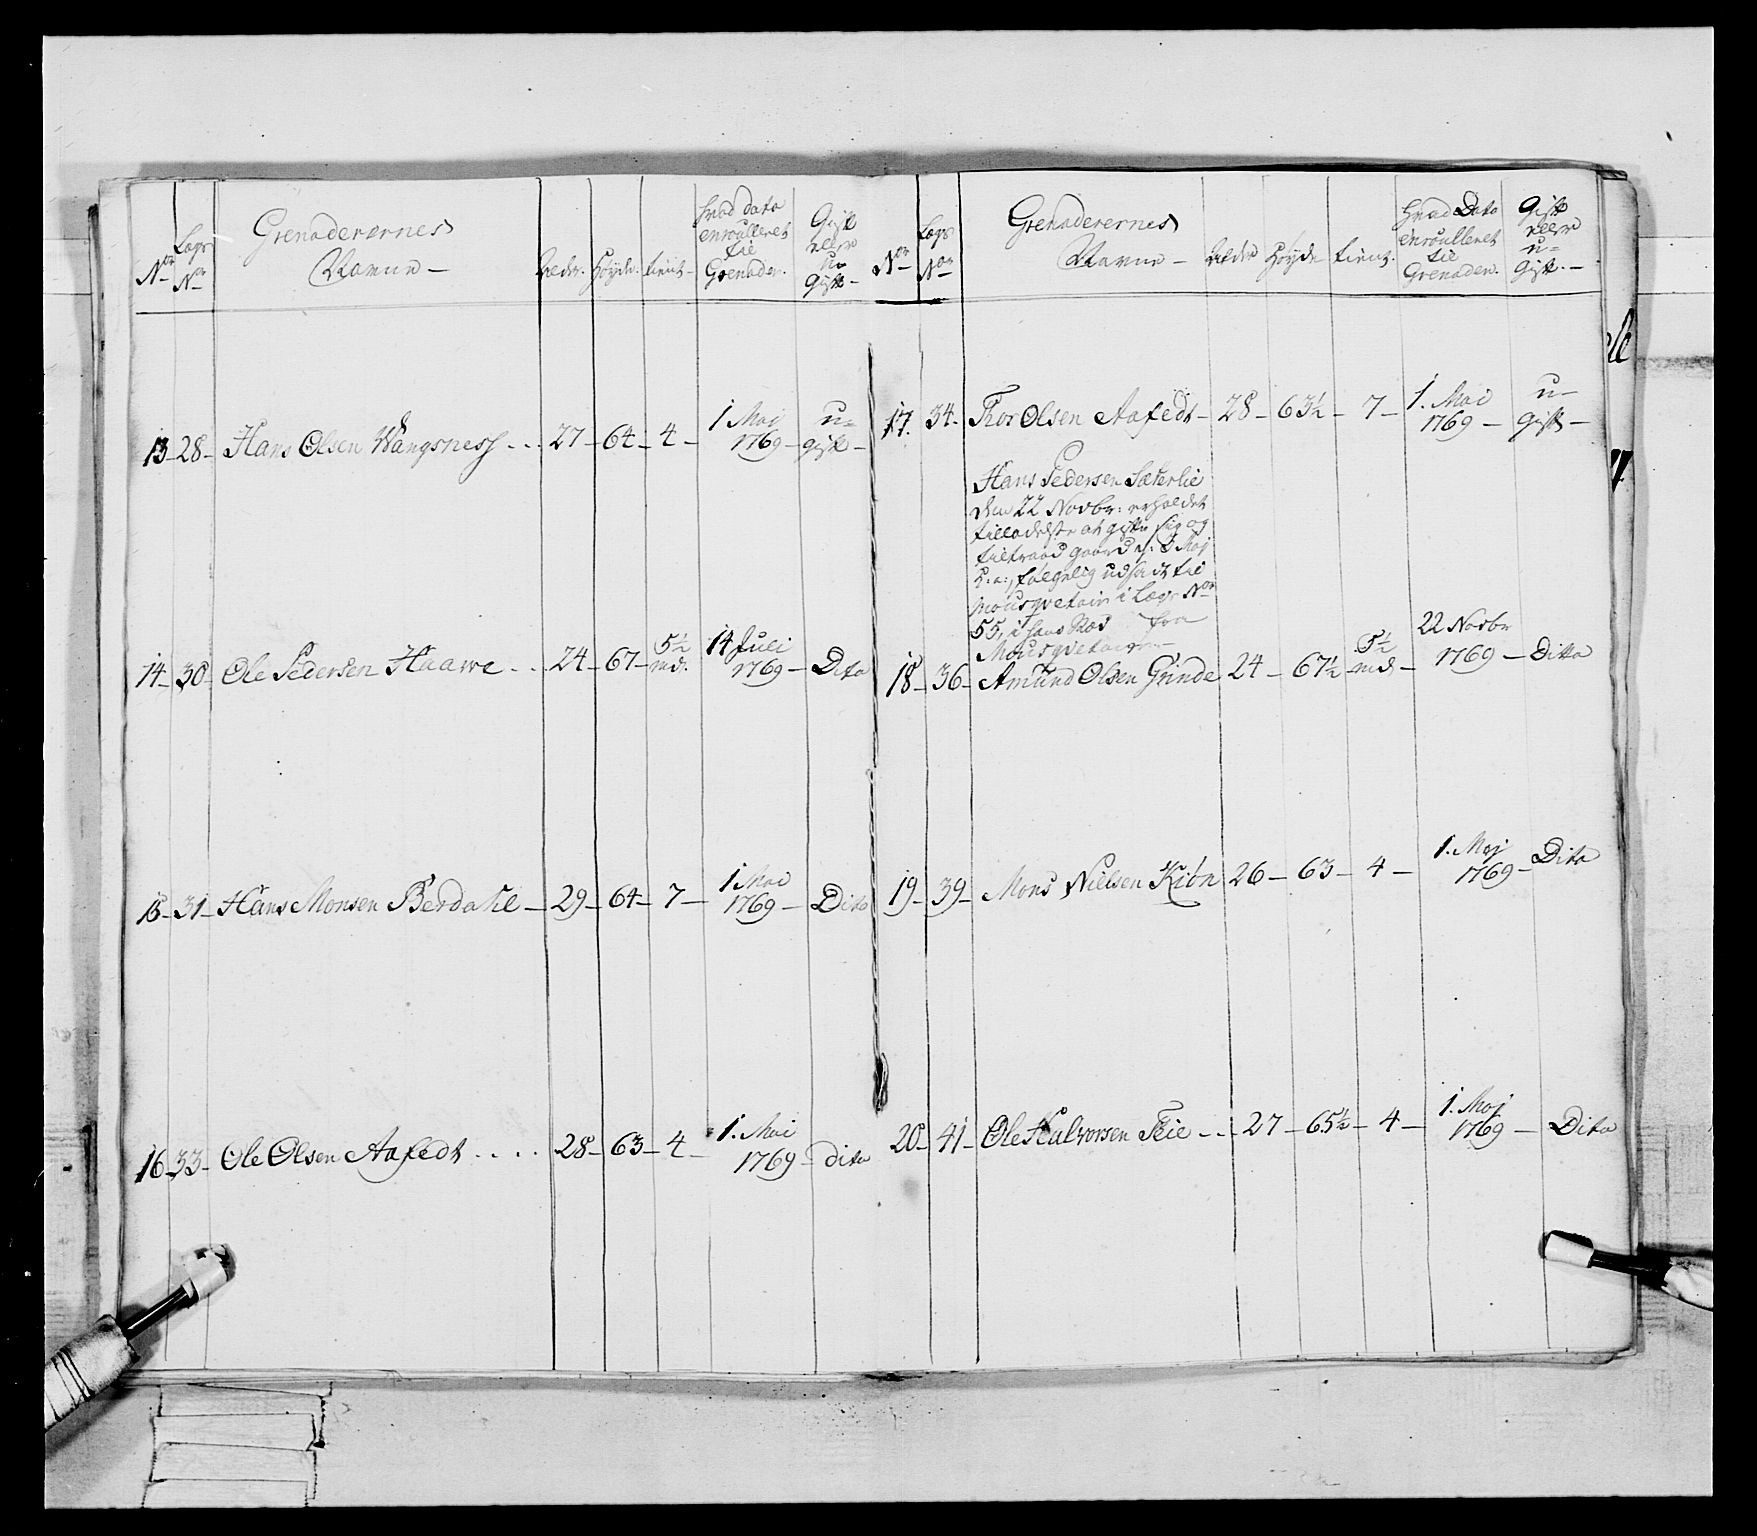 No
Lægs No
Grenaderernes
Navne -
Alder.
Høyde.
tient -
hvad dato
enroulleret
til
Grenader.
Gift
eller
u-
Gift -
13 - 28 - Hans Olsen Wangsness - - - 27 - 64 - 4 - 1 Maij 1769 - u-gift -
14 - 30 - Ole Pedersen Haawe - - - 24 - 67 - 5½ md. 14 Juli 1769 - Dito
15 - 31 - Hans Monsen Berdahl - 29 - 64 - 7 - 1. Mai 1769 - Dito
16 - 33 - Ole Olsen Aafedt - - - - 28 - 63 - 4 - 1. Mai 1769 - dito
No
Lægs No
Grenaderernes
Navne -
Alder
Høyde
tient.
Hvad Dato
enroulleret
til
Grenader.
Gift
eller
u-
Gift. -
17. 34. Thor Olsen Aafedt - 28 - 63½ - 7 - 1. Mai 1769 - u-Gift -
Hans Pedersen Sæterlie
den 22 Novbr: erholdet
tilladelse at gifte sig og
tiltraad gaard 3 Maj
følgelig udsadt til
Mousqvetair i Lægs No
55, i hans Stæd fra
Mousqvetair
18 - 36 - Amund Olsen Grinde 24 - 67½ - 5½ md - 22 Novbr 1769 - Ditto
19 - 39 - Mons Nielsen Kiøn 26 - 63 - 4 - 1. Maj 1769 - Dito
20 - 41 - Ole Halvorsen Teie - - - 27 - 65½ - 4 - 1. Maj 1769 - Dito